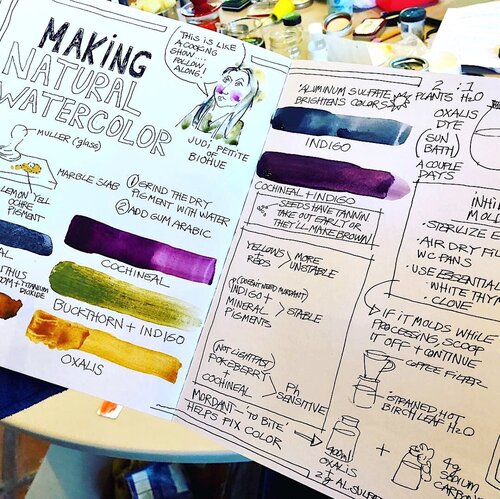 MAKING
NATURAL
WATERCOLOR
THIS IS LIKE
A COOKING
SHOW....
FOLLOW
ALONG!
JUDI PETTITE
OF
BIOHUE
MULLER (glass)
MARBLE SLAB
LEMON YELL
OCHRE
PIGMENT
① GRIND THE DRY
PIGMENT WITH WATER
② ADD GUM ARABIC
COCHINEAL
BUCKTHORN + INDIGO
OXALIS
AL
THUS
OM + TITANIUM
DIOXIDE
ALUMINUM SULFATE
BRIGHTENS COLORS
INDIGO
COCHINEAL + INDIGO
SEEDS HAVE TANNIN
TAKE OUT EARLY OR
THEY'LL MAKE BROWN
YELLOWS
+
REDS
MORE
UNSTABLE
(DOESN'T NEED MORDANT)
INDIGO +
MINERAL
PIGMENTS
STABLE
(NOT LIGHTFAST)
POKEBERRY
+
COCHINEAL
PH
SENSITIVE
MORDANT - 'TO BITE'
HELPS FIX COLOR
2 : 1
PLANTS H2O
OXALIS
DYE
(SUN
BATH)
A COUPLE
DAYS
INHI
MOL
- STERILIZE E
- AIR DRY FI
WC PANS
- USE ESSENTIAL
- WHITE THY
- CLOVE
IF IT MOLDS WHILE
PROCESSING, SCOOP
IT OFF + CONTINUE
COFFEE FILTER
STRAINED, HOT
BIRCH LEAF H2O
OXALIS
+
AL. SULF
+
4g
SODIUM
CARBON